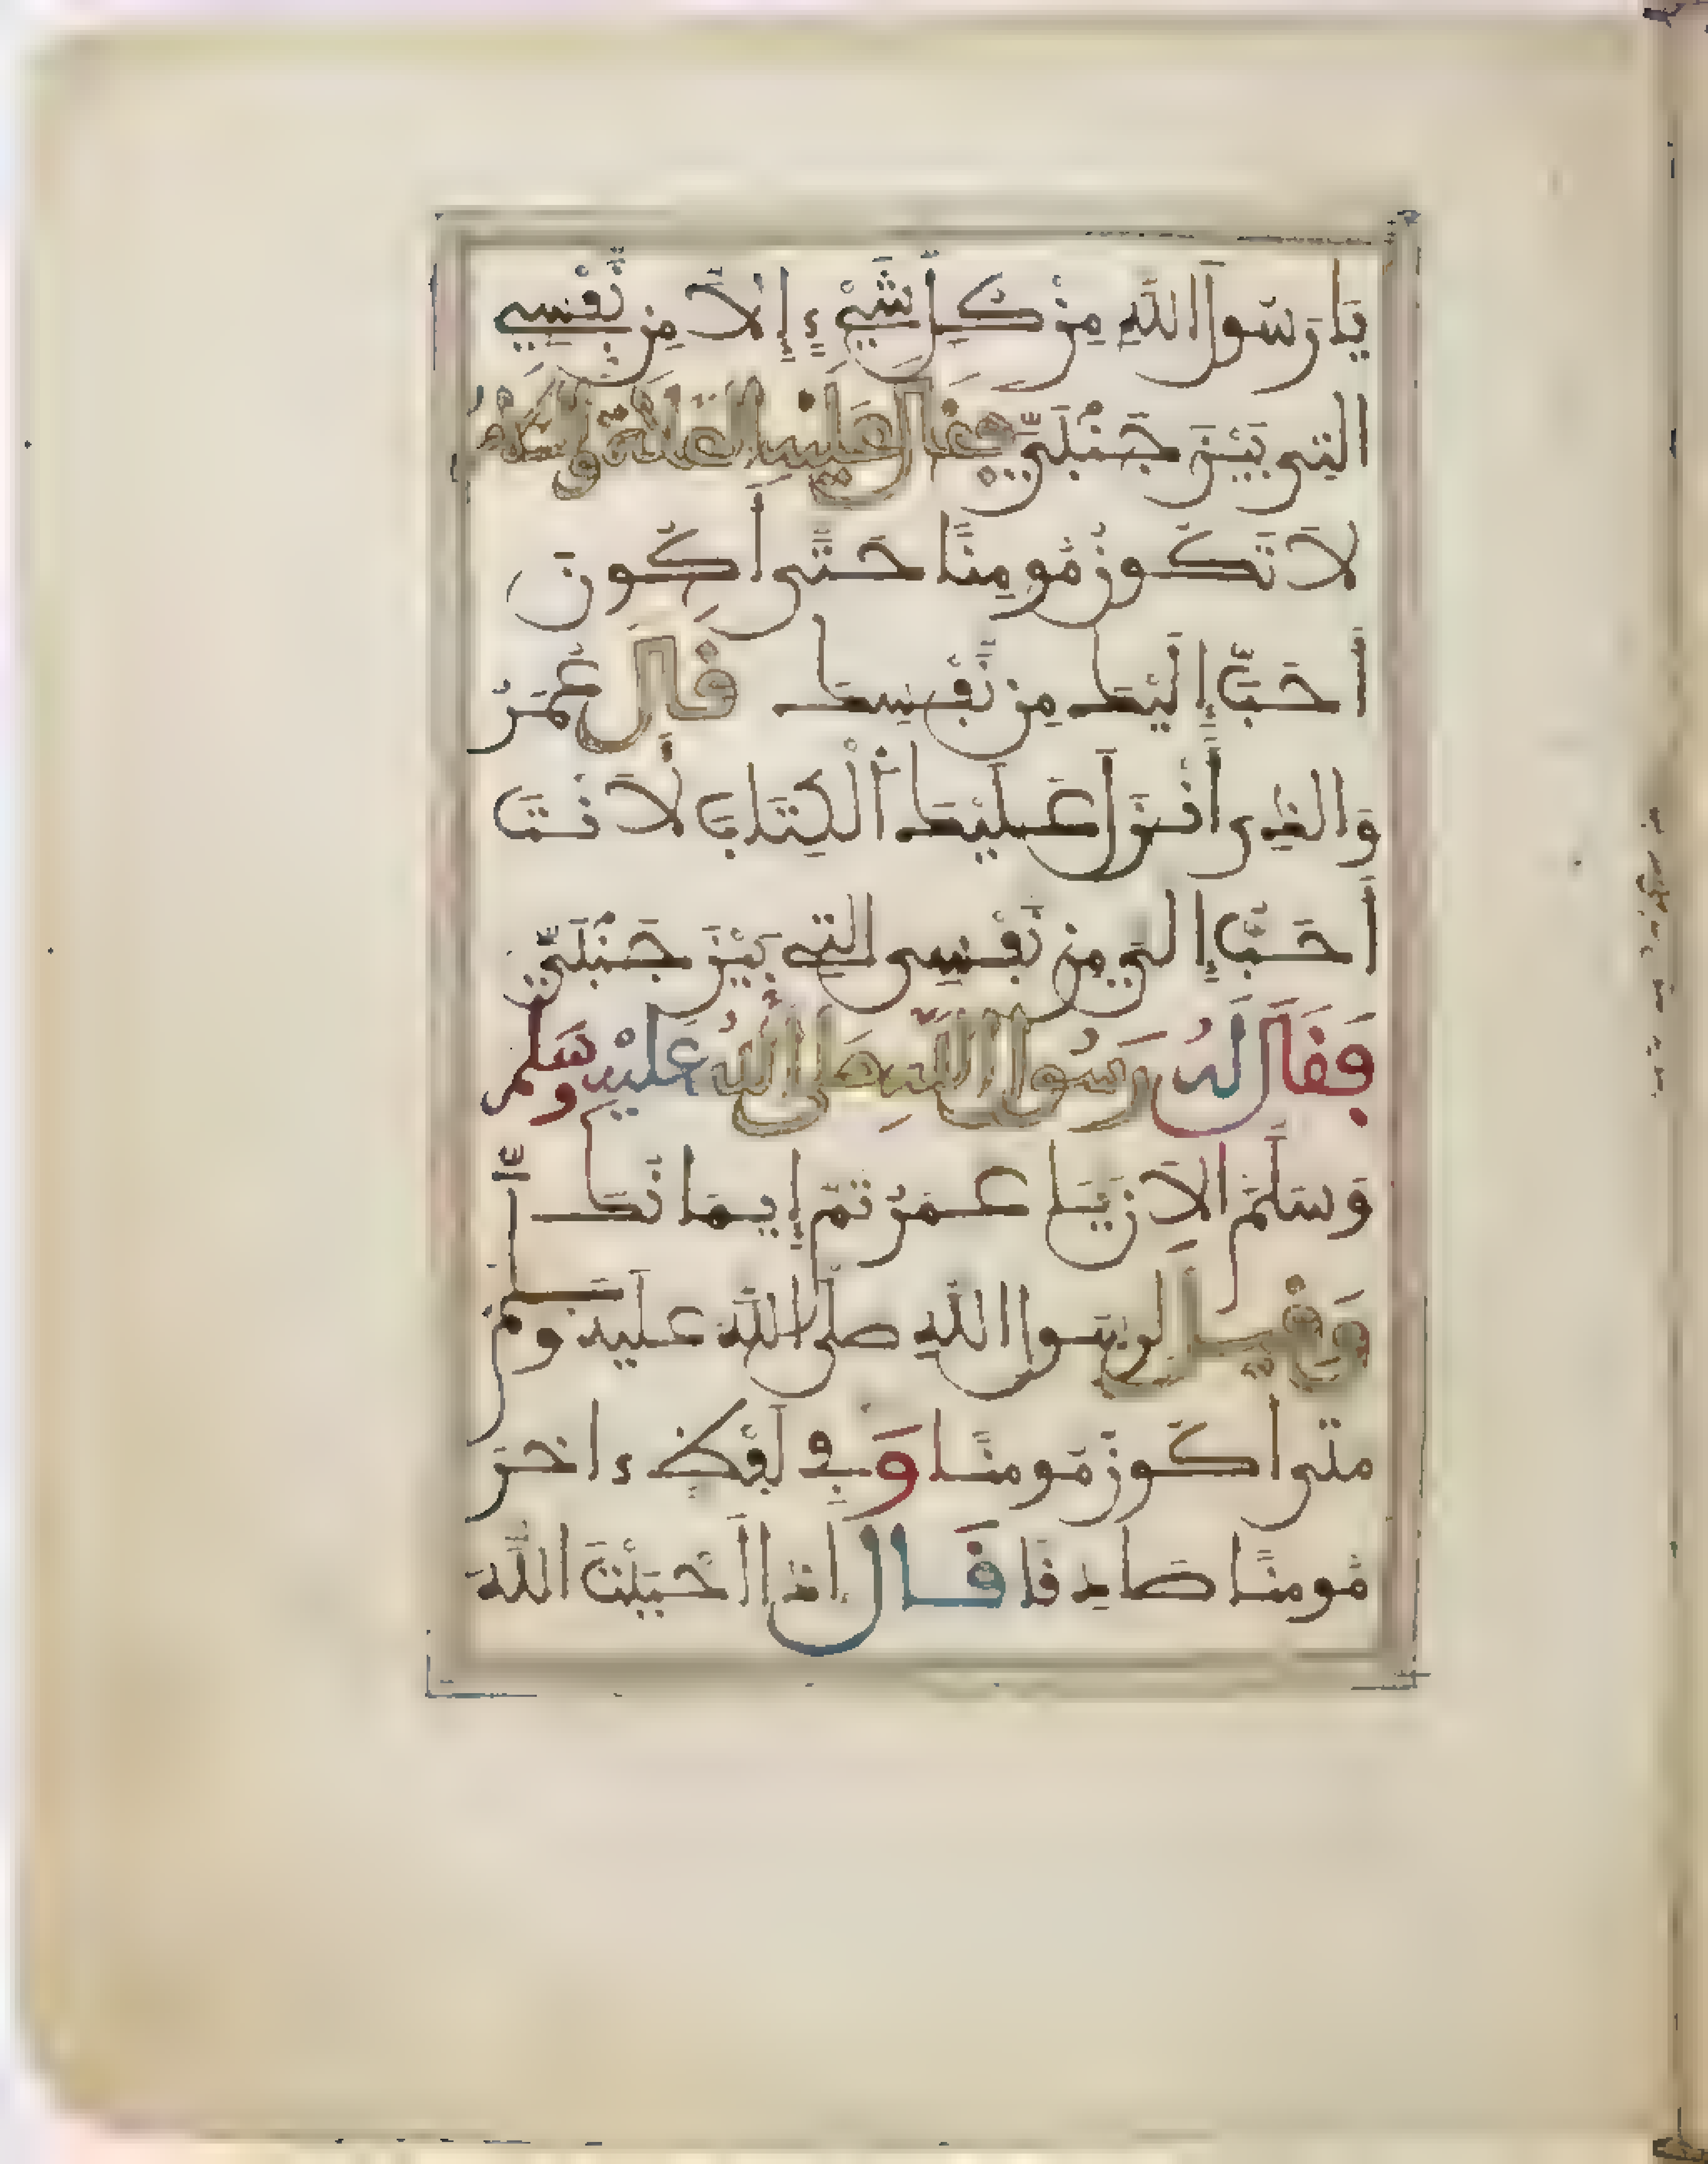 يَا رَسُولَ اللَّهِ مِنْ كُلِّ شَيْءٍ إِلَّا مِن نَّفْسِي
التِي بَيْنَ جَنْبَيَّ فَقَالَ عَلَيْهِ الصَّلَاةُ وَالسَّلَامُ
لَا تَكُونُ مُومِنًا حَتَّى أَكُونَ
أَحَبَّ إِلَيْكَ مِن نَّفْسِكَ قَالَ عُمَرُ
وَالذِي أَنْزَلَ عَلَيْكَ الْكِتَابَ لَأَنْتَ
أَحَبُّ إِلَيَّ مِن نَّفْسِي التِي بَيْنَ جَنْبَيَّ
فَقَالَ لَهُ رَسُولُ اللَّهِ صَلَّى اللَّهُ عَلَيْهِ وَسَلَّمَ
وَسَلَّمَ الآنَ يَا عُمَرُ تَمَّ إِيمَانُكَ
وَقِيلَ لِرَسُولِ اللَّهِ صَلَّى اللَّهُ عَلَيْهِ وَسَلَّمَ
مَتَى أَكُونُ مُومِنًا وَفِي لَفْظٍ ءاخَرَ
مُومِنًا صَادِقًا قَالَ إِذَا أَحْبَبْتَ اللَّهَ